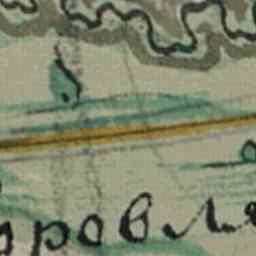 ровля